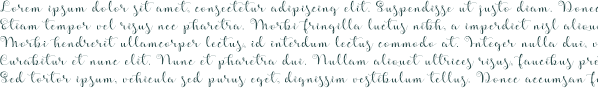 Lorem ipsum dolor sit amet, consectetur adipiscing elit. Suspendisse ut justo diam. Donec
Etiam tempor vel risus nec pharetra. Morbi fringilla luctus nibh, a imperdiet nisl aliqu
Morbi hendrerit ullamcorper lectus, id interdum lectus commodo at. Integer nulla dui, v
Curabitur et nunc elit. Nunc et pharetra dui. Nullam aliquet ultrices risus, faucibus pre
Sed tortor ipsum, vehicula sed purus eget, dignissim vestibulum tellus. Donec accumsan f